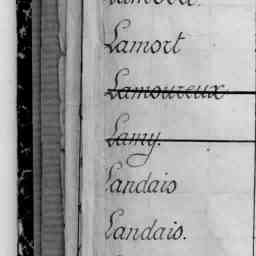 Lamort
Lamoureux
Lamy.
Landais
Landais.